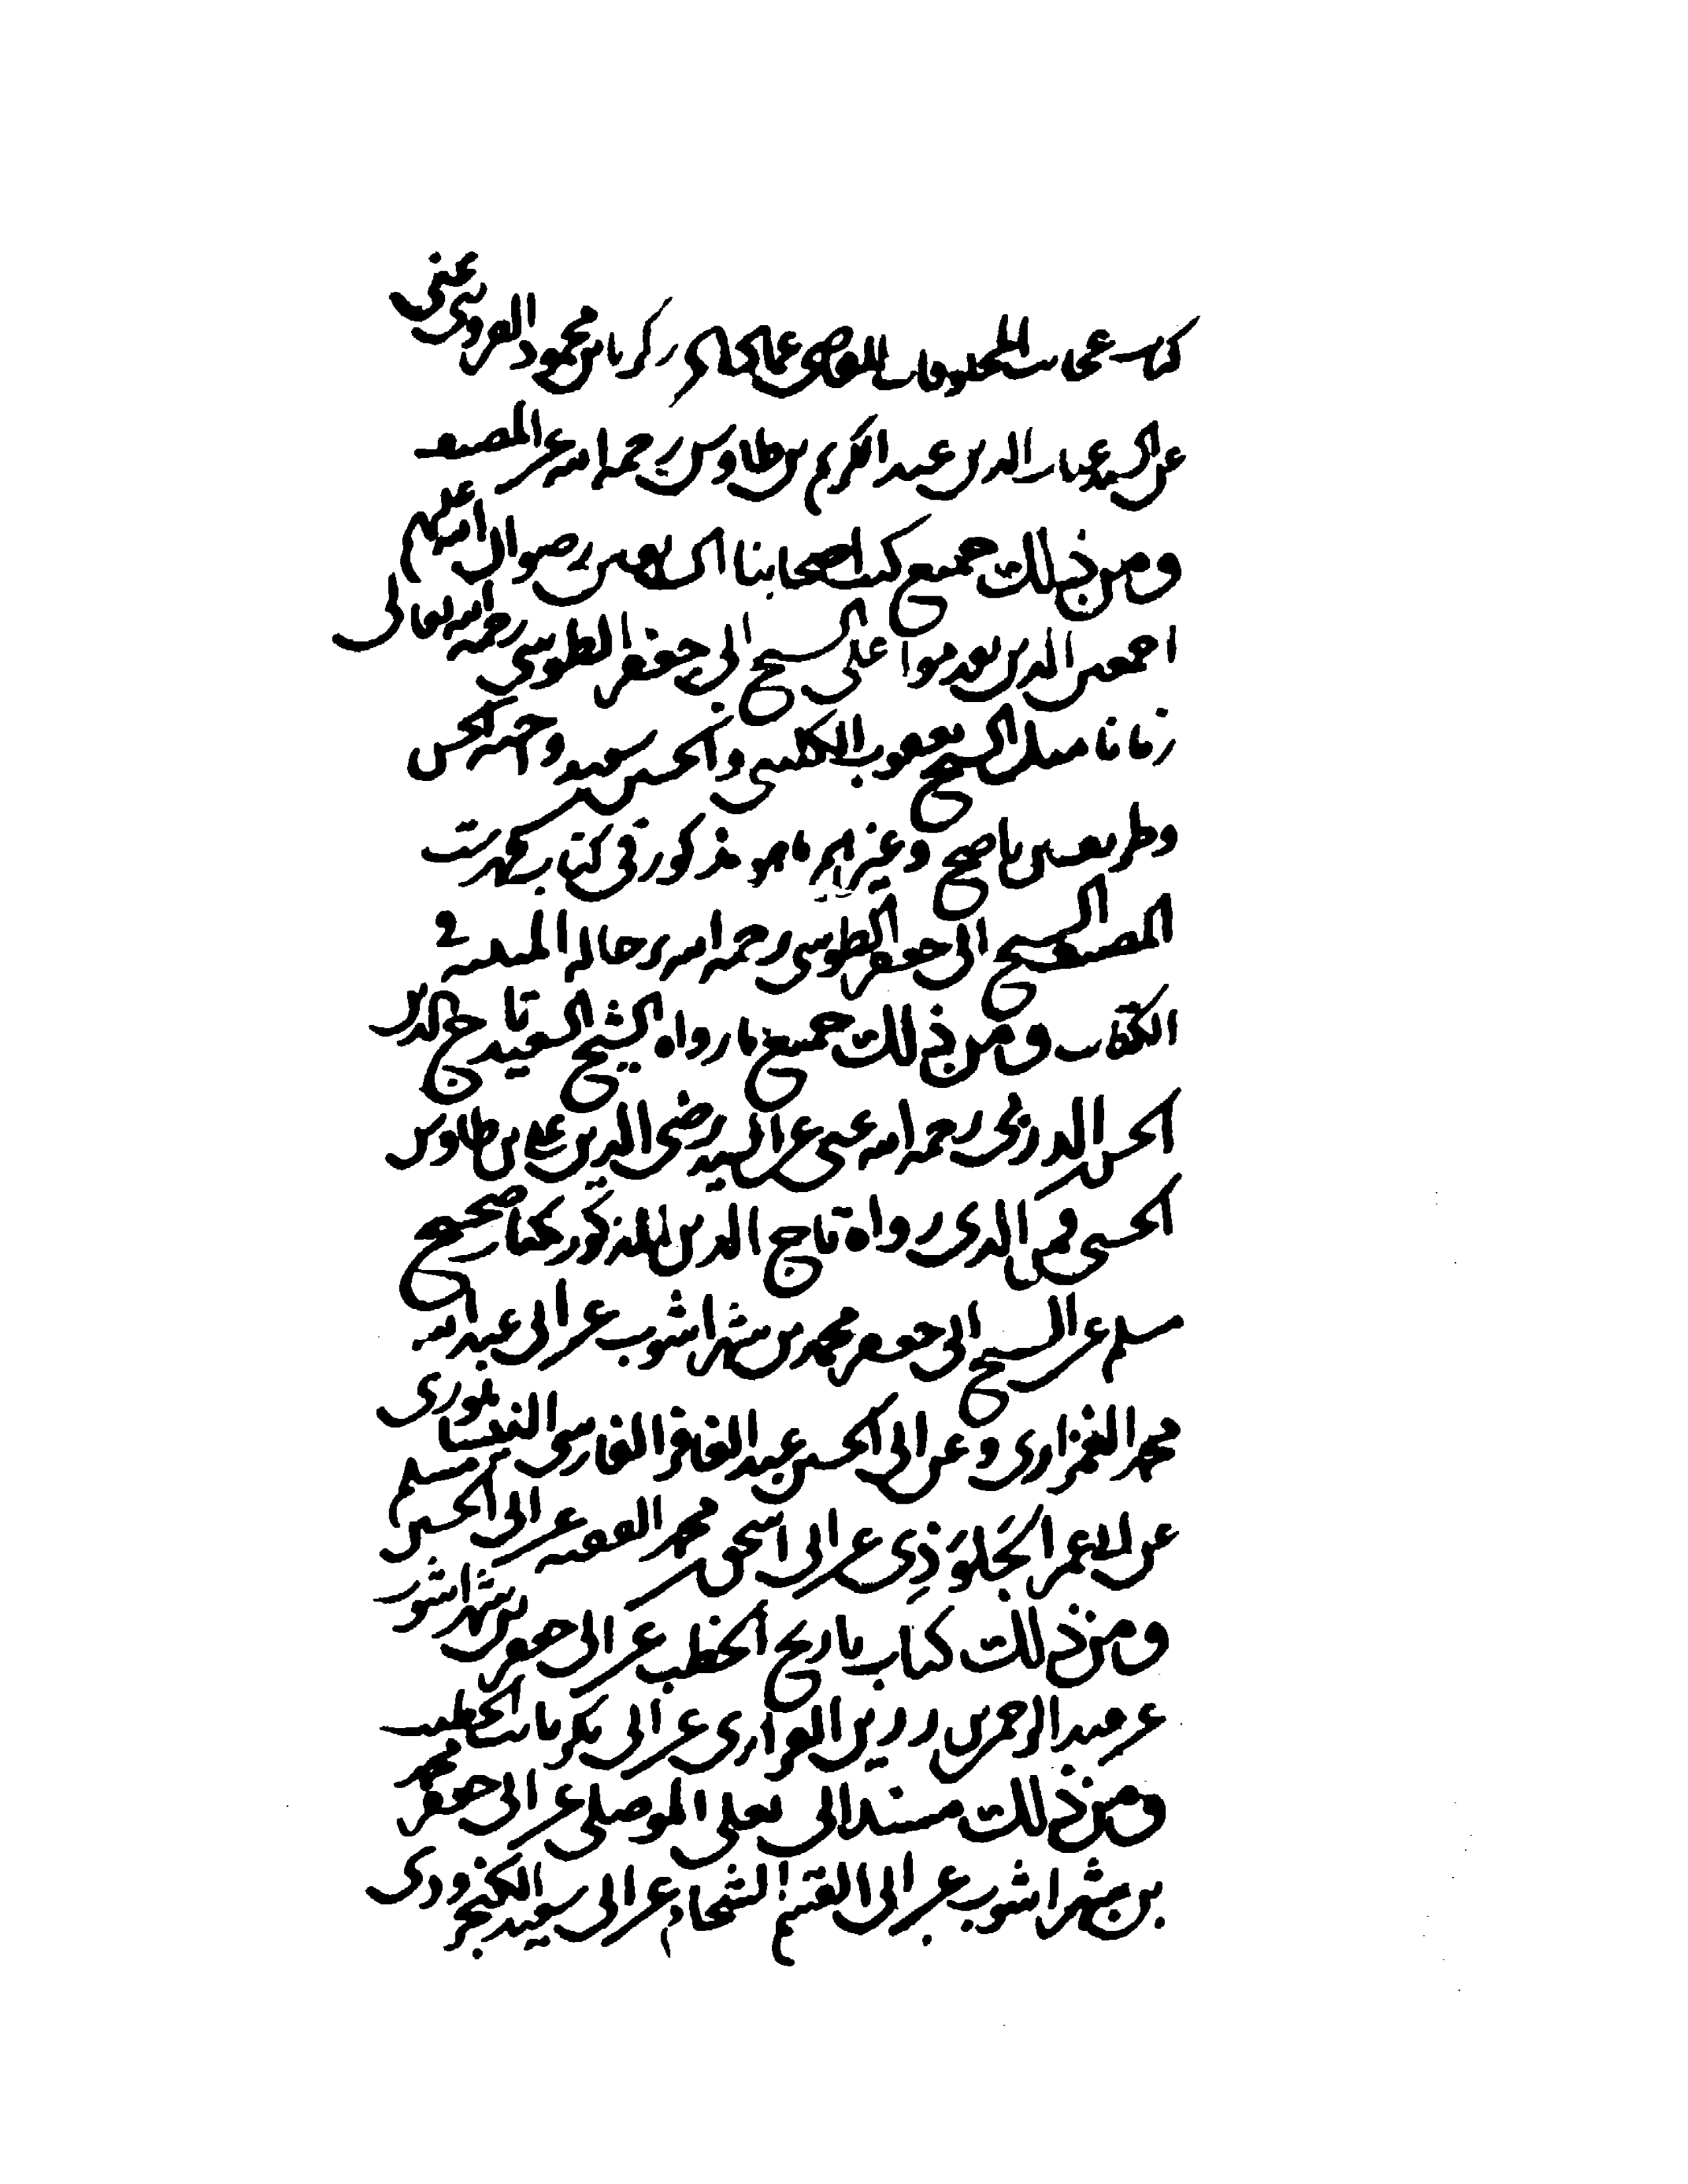 كتاب عجائب المخلوقات للقاضي عماد الدين زكريا بن محمود القزويني عني
عن السيد غياث الدين عبد الكريم بن طاوس رحمه الله عن المصنف
ومن ذلك جميع كتب اصحابنا السابقين رضوان الله عليهم
اجمعين الذين تقدموا على الشيخ ابي جعفر الطوسي رحمه الله تعالى
زمانا مثل الشيخ يعقوب الكليني والحسين سعيد واخيه الحسن
وظريف بن ناصح وغيرهم ما هو مذكور في كتاب فهرست
المصنفين الشيخ ابي جعفر الطوسي رحمه الله برجاله المثبتة في
الكتاب ومن ذلك جميع ما رواه الشيخ السعيد تاج الدين
الحسن الدربي رحمه الله عني عن السيد رضي الدين علي بن طاوس
الحسني فمن الذي رواه تاج الدين المذكور كتاب صحيح
مسلم عن الشيخ ابي جعفر محمد بن شهراشوب عن ابي عبد الله
محمد الفراوي وعن ابي الحسين عبد الغافر الفارسي النيسابوري
عن الجلوذي عن ابي اسحق محمد الفقيه عن ابي الحسين مسلم
ومن ذلك كتاب تاريخ الخطيب عن ابي جعفر بن شهراشوب
عن عبد الرحمن زريق القزازي عن ابي بكر ثابت الخطيب
ومن ذلك مسند ابي يعلى الموصلي عن ابي جعفر محمد
بن شهراشوب عن ابي القسم الشحام عن ابي سعيد الكنجرودي